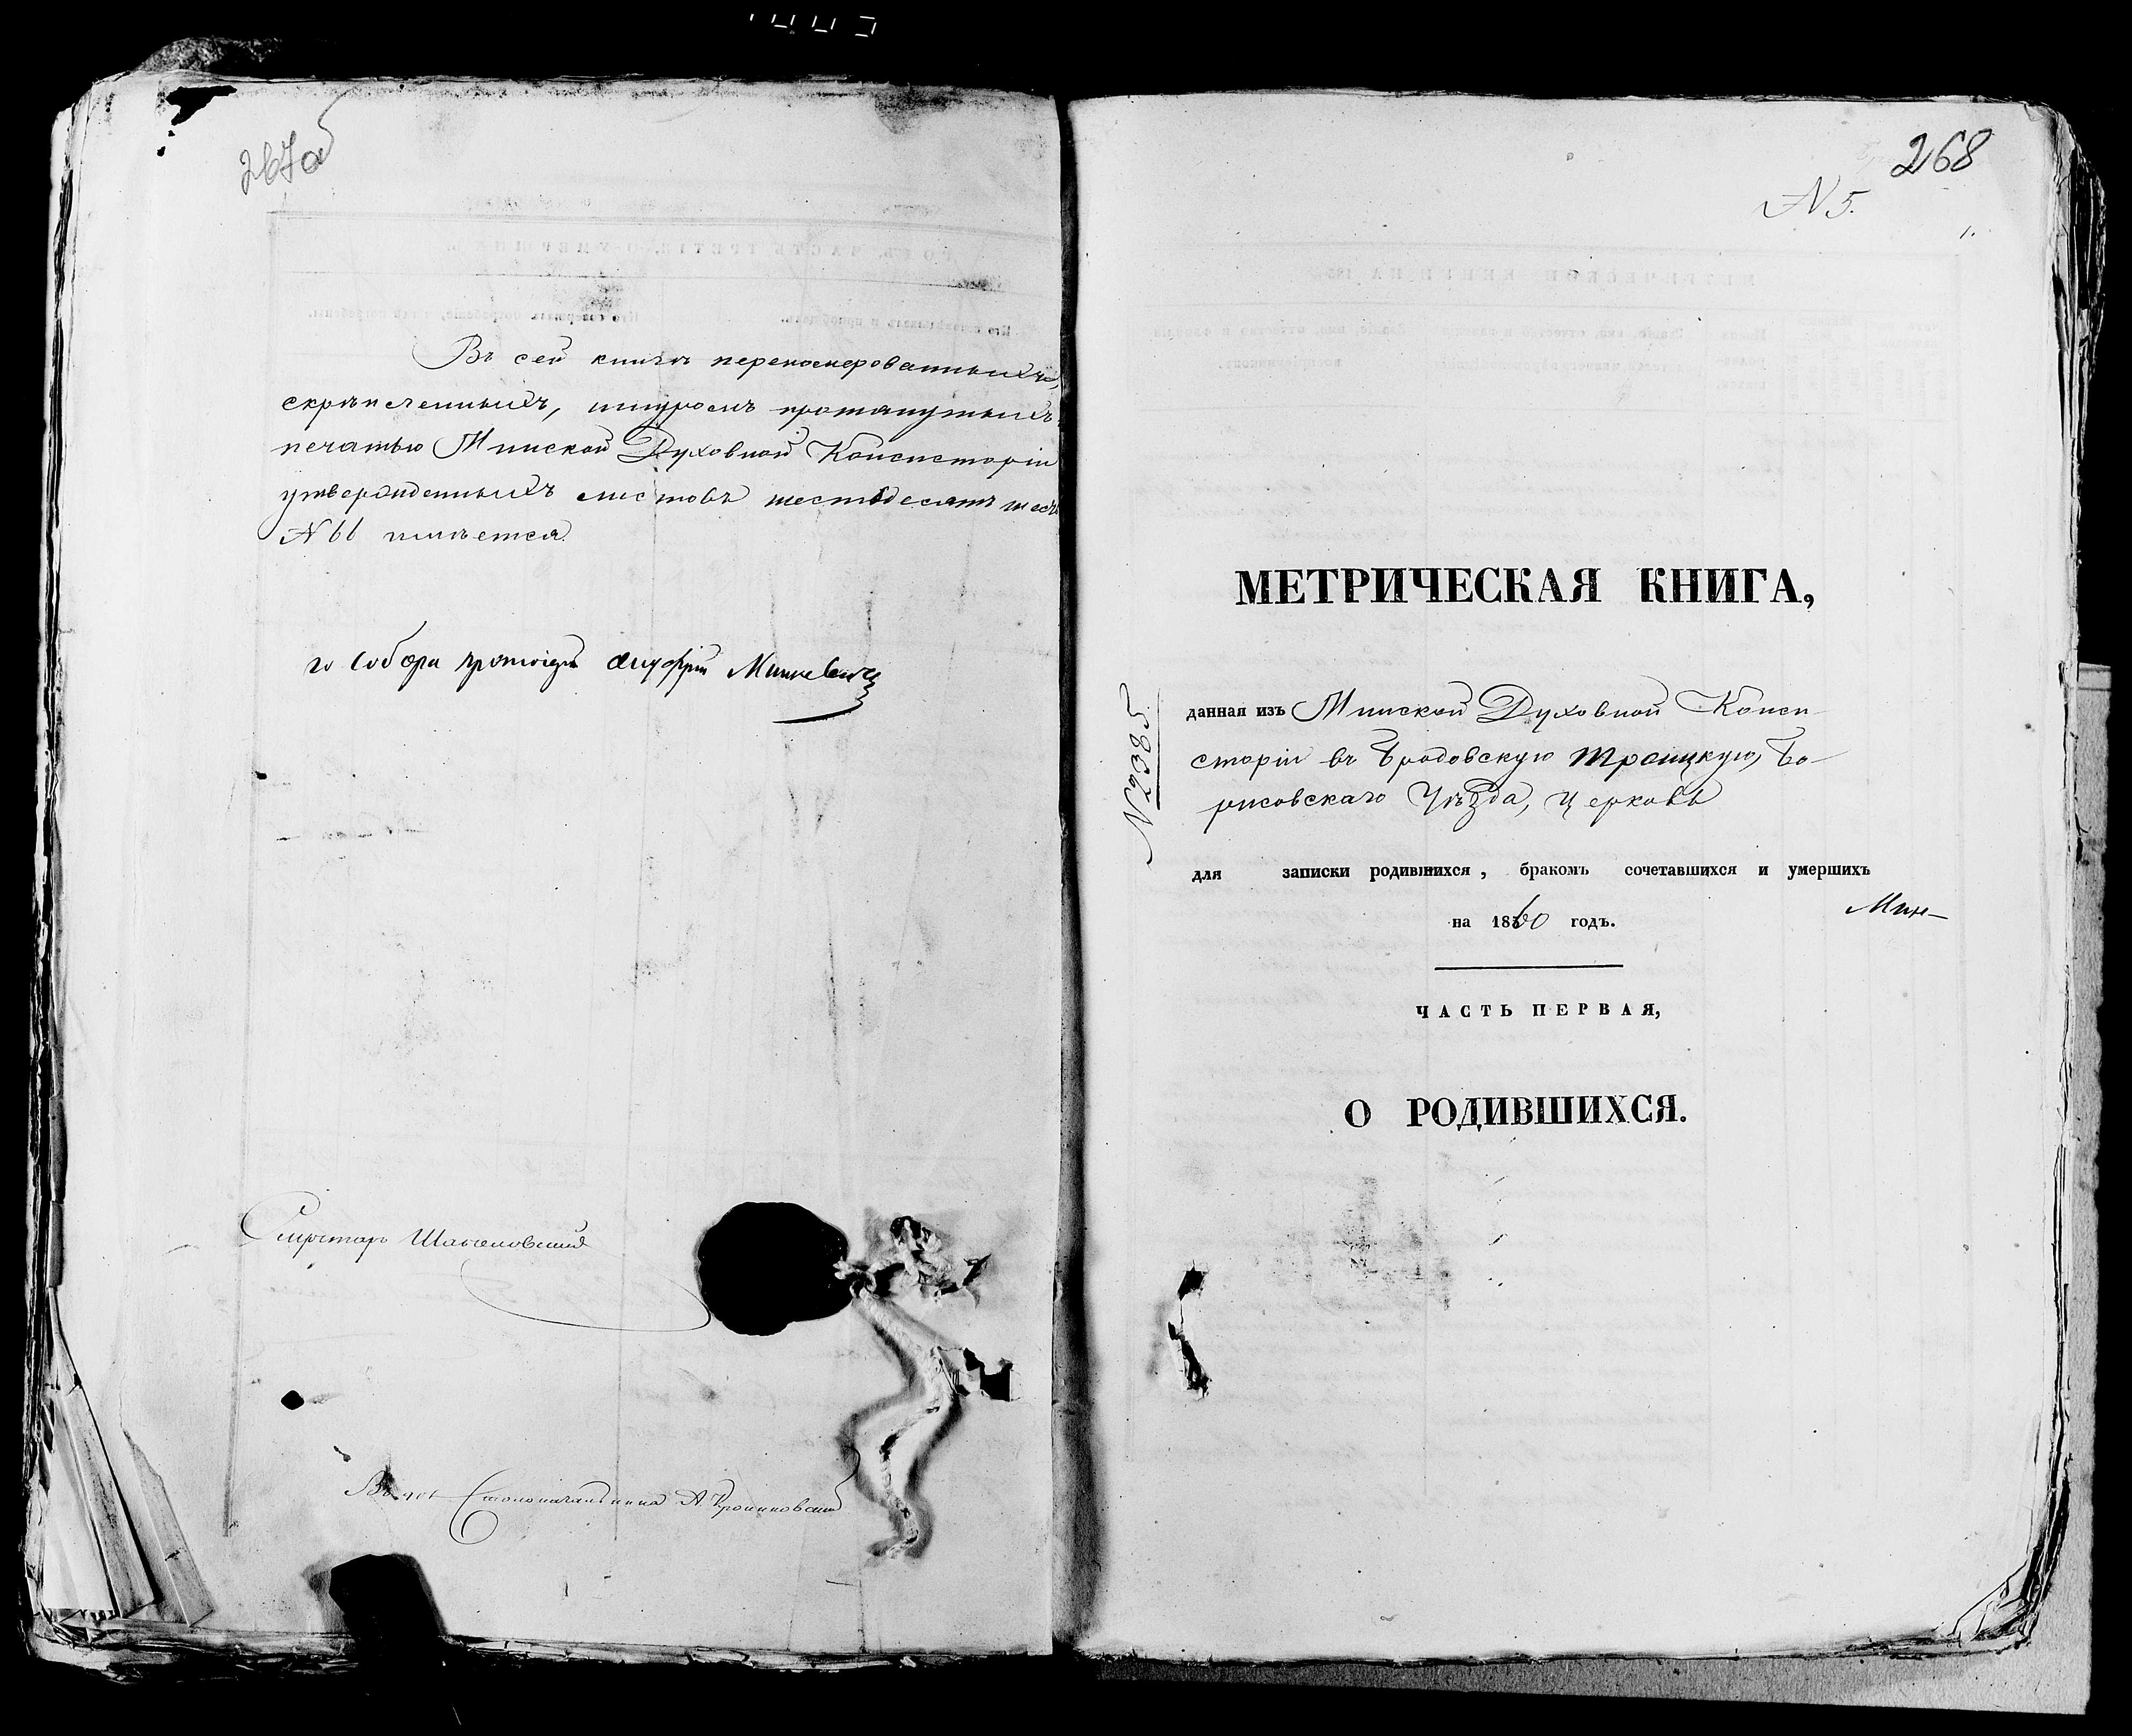 267об
Въ сей книгѣ перенумерованныхъ,
скрѣпленныхъ, шнуромъ протянутыхъ
печатью Минской Духовной Консисторіи
утвержденныхъ листовъ шестьдесятъ шесть
N 66 имѣется.
го Собора протоіерей Минкевичъ
Секретарь
Столоначальника А.
268
N 5.
1.
МЕТРИЧЕСКАЯ КНИГА,
N 2385
данная изъ Минской Духовной Конси-
сторіи въ Бродовскую Троицкую, Бо-
рисовскаго Уѣзда, церковь
для записки родившихся, бракомъ сочетавшихся и умершихъ
на 1860 годъ.
Мин-
ЧАСТЬ ПЕРВАЯ,
О РОДИВШИХСЯ.